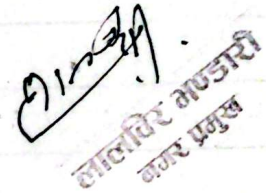 लालविर भण्डारी
नगर प्रमुख